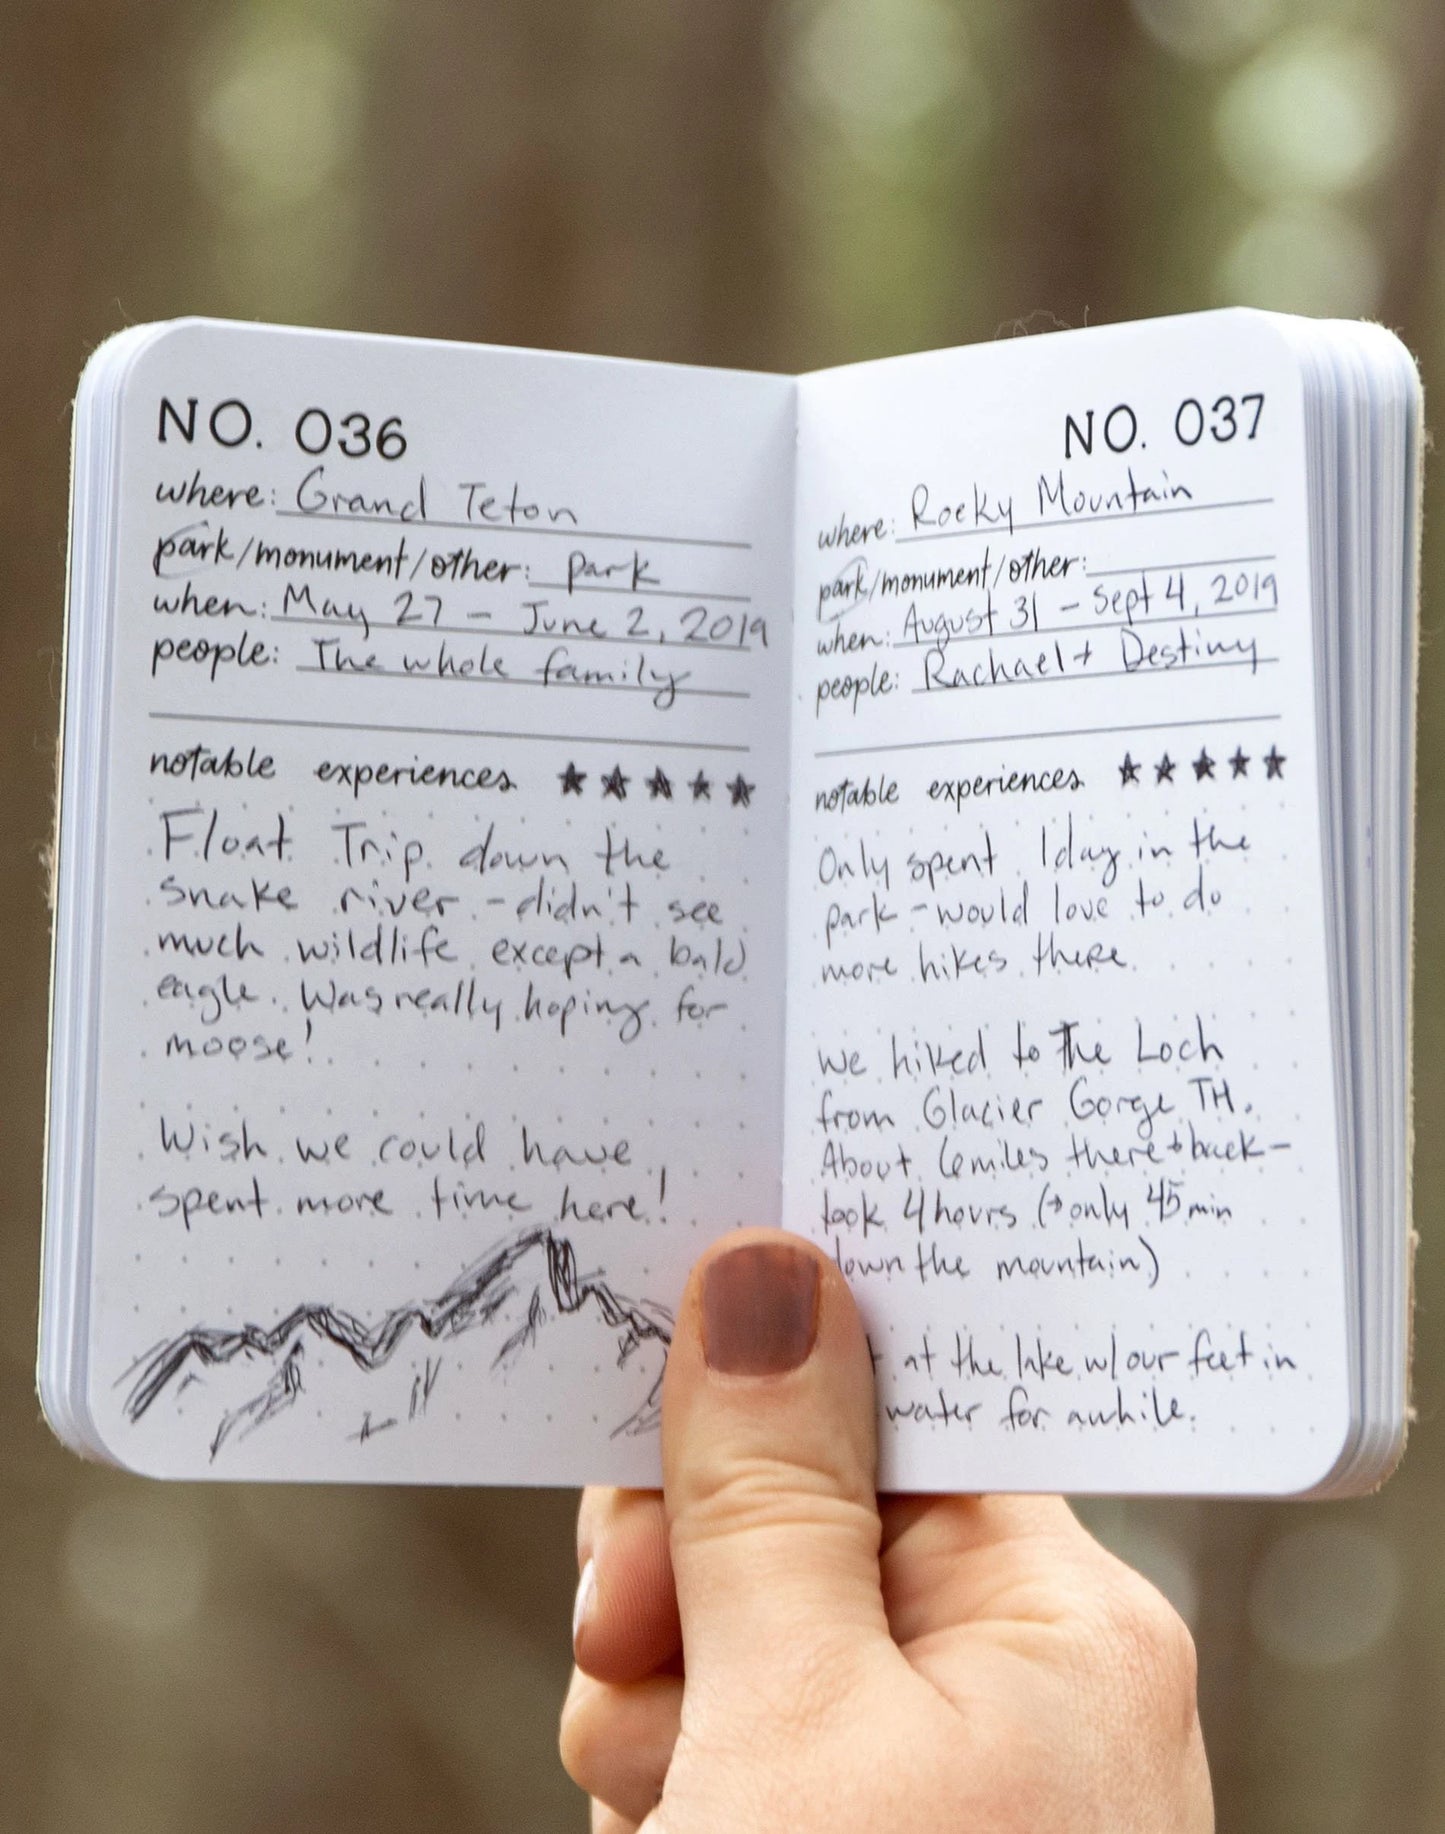 NO. 036
where: Grand Teton
park/monument/other: Park
when: May 27 - June 2, 2019
people: The whole family
notable experiences ★★★★★
Float Trip down the
snake river - didn't see
much wildlife except a bald
eagle. Was really hoping for
moose!
Wish we could have
spent more time here!
NO. 037
where: Rocky Mountain
park/monument/other:
when: August 31 - Sept 4, 2019
people: Rachael + Destiny
notable experiences ★★★★★
Only spent 1 day in the
park - would love to do
more hikes there
We hiked to The Loch
from Glacier Gorge TH.
About 6 miles there + back -
took 4 hours (→ only 45 min
down the mountain)
at the lake w/ our feet in
water for awhile.